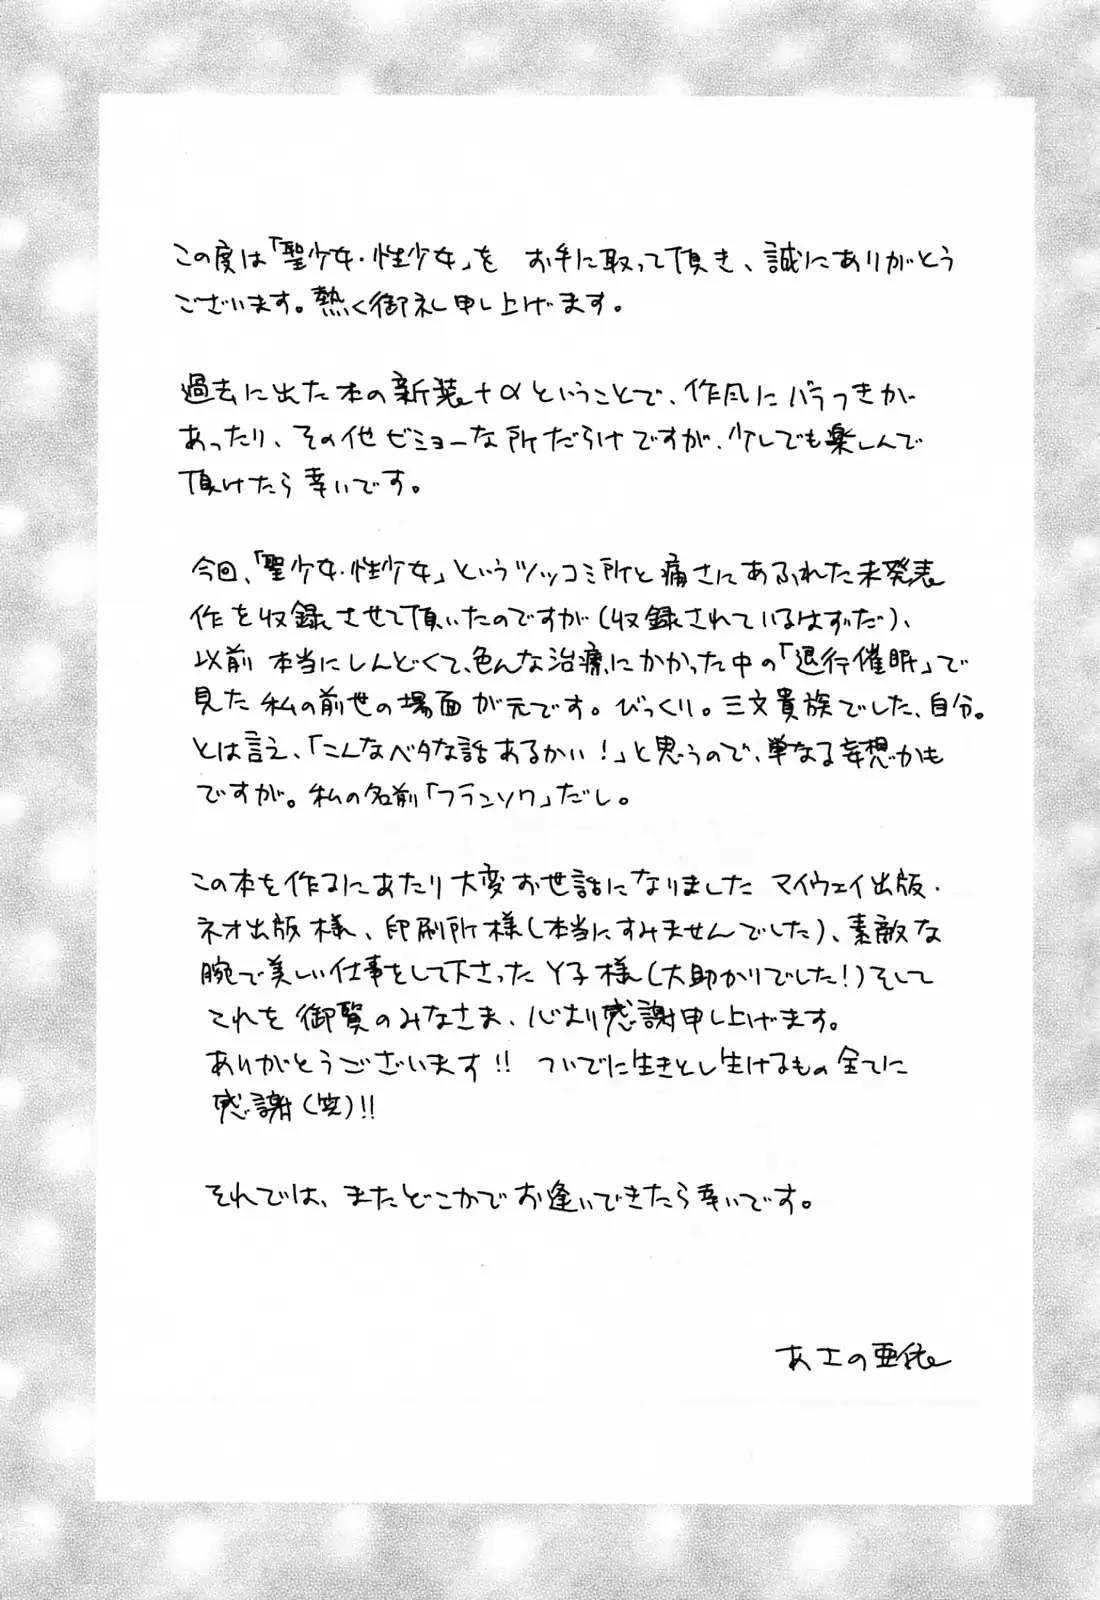 この度は「聖少女・性少女」を お手に取って頂き、誠にありがとう
ございます。熱く御礼申し上げます。
過去に出た本の新装+αということで、作風にバラつきが
あったり、その他ビミョーな所だらけですが、少しでも楽しんで
頂けたら幸いです。
今回、「聖少女・性少女」というツッコミ所と痛さにあふれた未発表
作を収録させて頂いたのですが(収録されているはずだ)、
以前本当にしんどくて、色んな治療にかかった中の「退行催眠」で
見た私の前世の場面が元です。びっくり。三文貴族でした、自分。
とは言え、「こんなベタな話あるかい!」と思うので、単なる妄想かも
ですが。私の名前「フランソワ」だし。
この本を作るにあたり大変お世話になりました マイウェイ出版・
ネオ出版様、印刷所様(本当にすみませんでした)、素敵な
腕で美しい仕事をして下さったY子様(大助かりでした!)そして
これを御覧のみなさま、心より感謝申し上げます。
ありがとうございます!! ついでに生きとし生けるもの全てに
感謝(笑)!!
それでは、またどこかでお逢いできたら幸いです。
あさの亜依